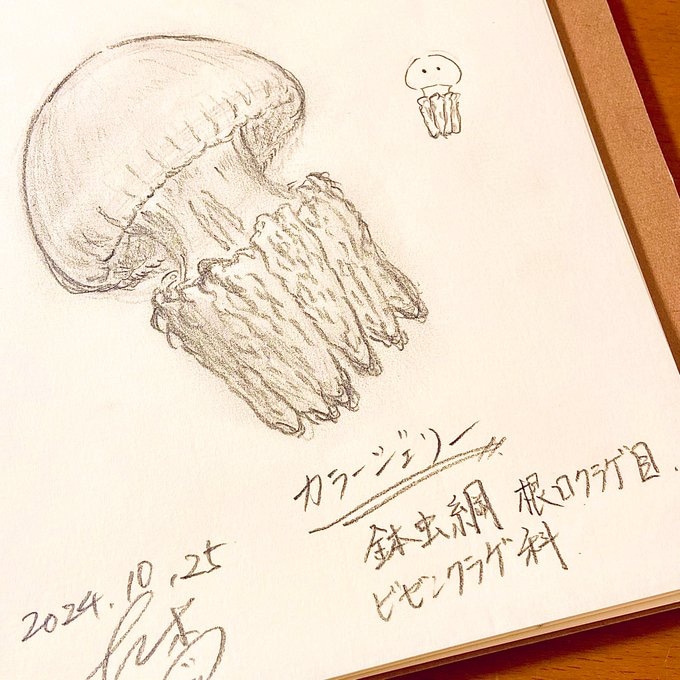 カラージェリー
鉢虫綱 根口クラゲ目.
ビゼンクラゲ科
2024.10.25